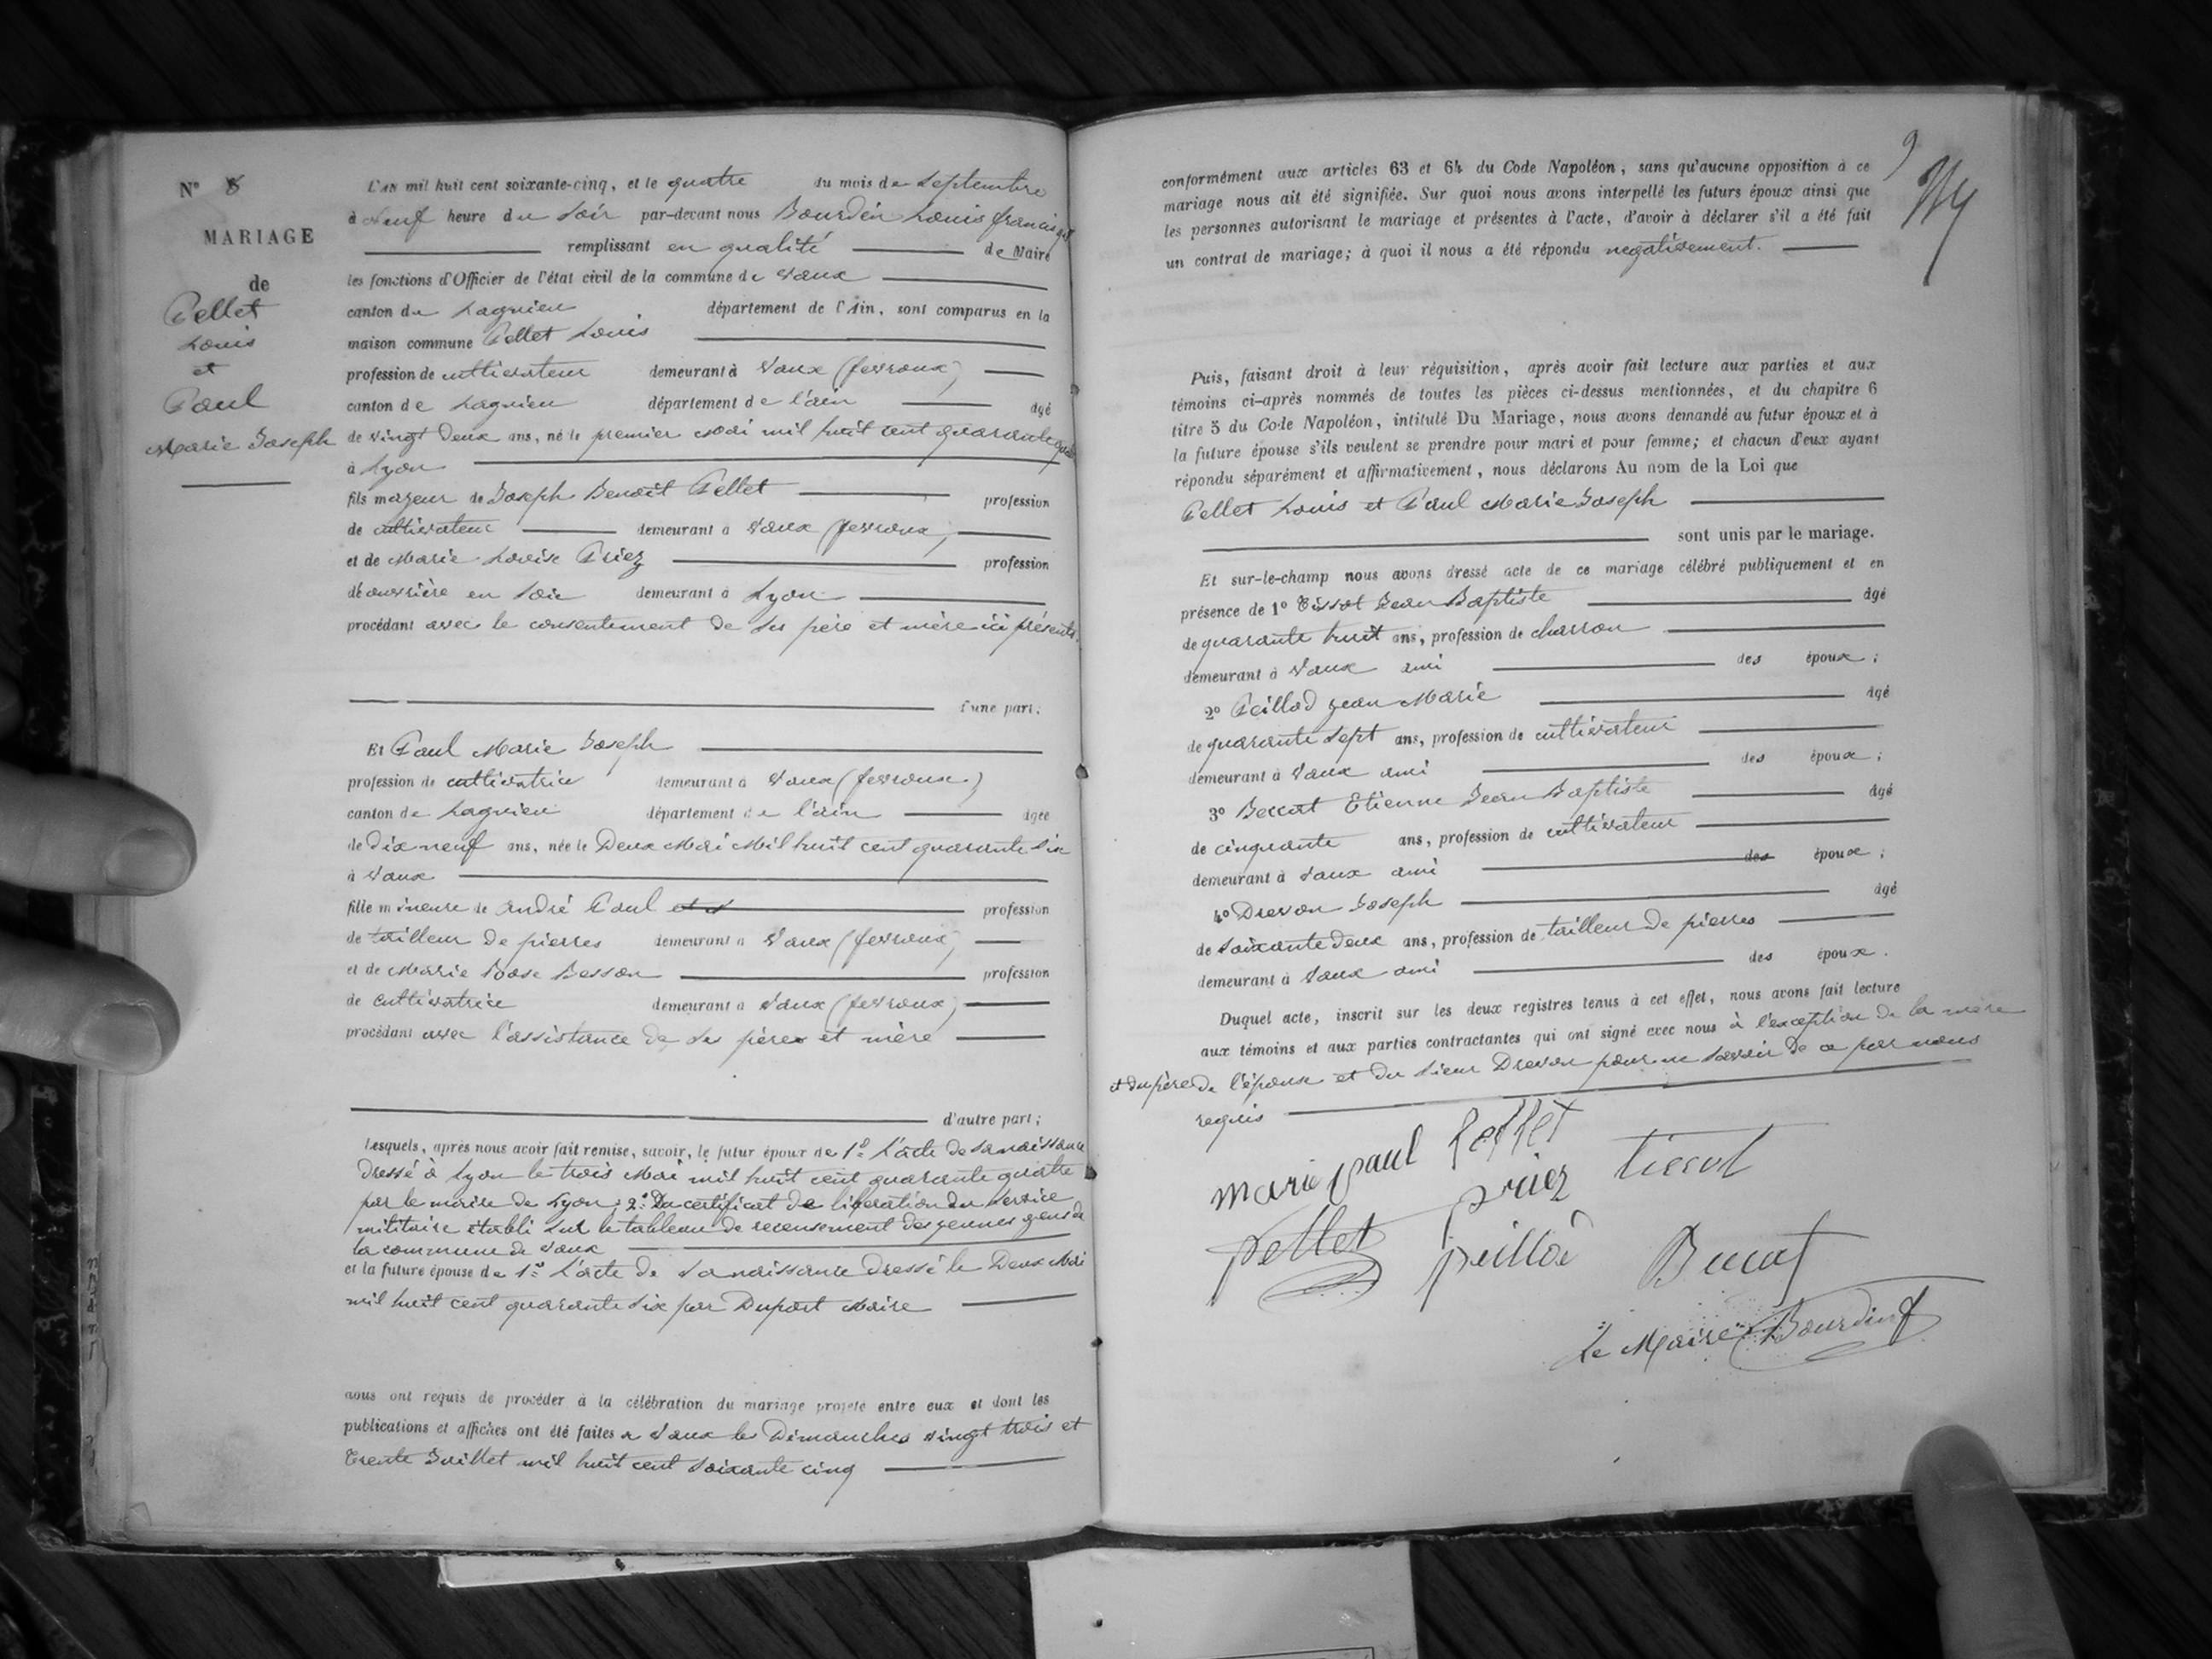 N° 8
MARIAGE
de
Pellet
Louis
et
Paul
Marie Joseph
L'AN mil huit cent soixante-cinq, et le quatre du mois de Septembre
à Neuf heure du Soir par-devant nous Bourdin Louis françois
remplissant en qualité de Maire
les fonctions d'Officier de l'état civil de la commune de Vaux
canton de Lagnieu département de l'Ain, sont comparus en la
maison commune Pellet Louis
profession de cultivateur demeurant à Vaux (fevroux)
canton de Lagnieu département de l'ain âgé
de vingt Deux ans, né le premier Mai mil huit cent quarante quatre
à Lyon
fils majeur de Joseph Benoit Pellet profession
de cultivateur demeurant à Vaux (fevroux)
et de Marie Louise Priez profession
d'ouvrière en Soie demeurant à Lyon
procédant avec le consentement de Ses père et mère ici présents.
d'une part;
Et Paul Marie Joseph
profession de cultivatrice demeurant à Vaux (fevroux)
canton de Lagnieu département de l'ain âgée
de Dix neuf ans, née le Deux Mai Mil huit cent quarante Six
à Vaux
fille mineure de André Paul profession
de tailleur De pierres demeurant à Vaux (fevroux)
et de Marie Rose Besson profession
de Cultivatrice demeurant à Vaux (fevroux)
procédant avec l'assistance de Ses pères et mère
d'autre part;
Lesquels, après nous avoir fait remise, savoir, le futur époux de 1° L'acte De Sa naissance
Dressé à Lyon le trois Mai mil huit cent quarante quatre
par le maire de Lyon; 2° Du certificat De libération du Service
militaire établi Sur le tableau de recensement des jeunes gens de
la commune de Vaux
et la future épouse de 1° L'acte de Sa naissance Dressé le Deux Mai
mil huit cent quarante Six par Dupont Maire
nous ont requis de procéder à la célébration du mariage projeté entre eux et dont les
publications et affiches ont été faites à Vaux les Dimanches vingt trois et
Trente Juillet mil huit cent Soixante cinq
9
conformément aux articles 63 et 64 du Code Napoléon, sans qu'aucune opposition à ce
mariage nous ait été signifiée. Sur quoi nous avons interpellé les futurs époux ainsi que
les personnes autorisant le mariage et présentes à l'acte, d'avoir à déclarer s'il a été fait
un contrat de mariage; à quoi il nous a été répondu negativement.
Puis, faisant droit à leur réquisition, après avoir fait lecture aux parties et aux
témoins ci-après nommés de toutes les pièces ci-dessus mentionnées, et du chapitre 6
titre 5 du Code Napoléon, intitulé Du Mariage, nous avons demandé au futur époux et à
la future épouse s'ils veulent se prendre pour mari et pour femme; et chacun d'eux ayant
répondu séparément et affirmativement, nous déclarons Au nom de la Loi que
Pellet Louis et Paul Marie Joseph
sont unis par le mariage.
Et sur-le-champ nous avons dressé acte de ce mariage célébré publiquement et en
présence de 1° Tissot Jean Baptiste âgé
de quarante huit ans, profession de charron
demeurant à Vaux ami des époux;
2° Peillod jean Marie âgé
de quarante Sept ans, profession de cultivateur
demeurant à Vaux ami des époux;
3° Beccat Etienne Jean Baptiste âgé
de cinquante ans, profession de cultivateur
demeurant à Vaux ami des époux;
4° Drevon Joseph âgé
de Soixante deux ans, profession de tailleur De pierres
demeurant à Vaux ami des époux.
Duquel acte, inscrit sur les deux registres tenus à cet effet, nous avons fait lecture
aux témoins et aux parties contractantes qui ont signé avec nous à l'exception De la mère
et du père De l'épouse et du Sieur Drevon pour ne Savoir De ce par nous
requis
marie paul Pellet
priez tissot
pellet peillod Beccat
Le Maire Bourdin